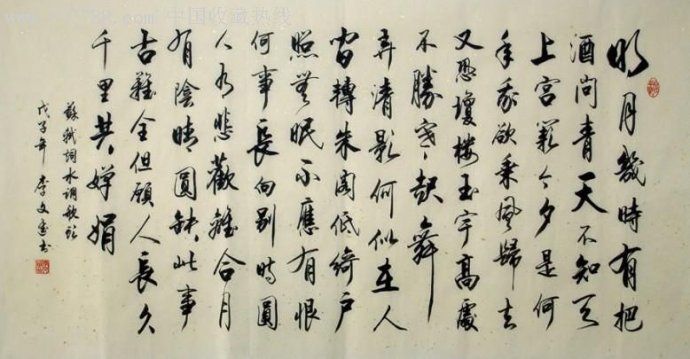 中国收藏热线
明月幾時有把
酒问青天不知天
上宫阙今夕是何
年我欲乘風歸去
又恐瓊楼玉宇高處
不勝寒起舞
弄清影何似在人
间轉朱阁低綺户
照無眠不應有恨
何事長向别時圓
人有悲歡離合月
有陰晴圓缺此事
古難全但願人長久
千里共嬋娟
蘇軾詞水调歌頭
戊子年 李文书